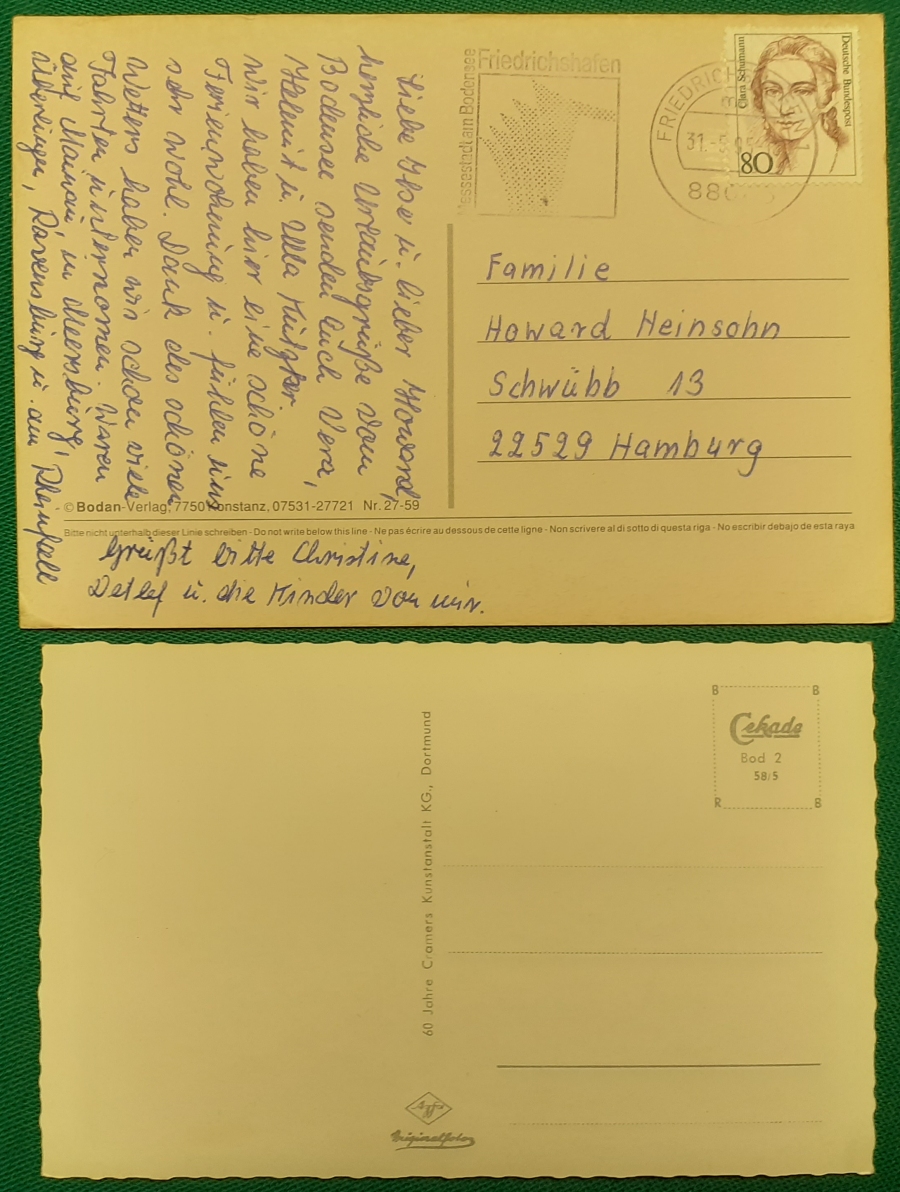 Liebe Ilse u. lieber Howard,
herzliche Urlaubsgrüße vom
Bodensee senden Euch Vera,
Helmut u. Ulla
Wir haben hier eine schöne
Ferienwohnung u. fühlen uns
sehr wohl. Dank des schönen
Wetters haben wir schon viele
Fahrten unternommen. Waren
auf Mainau, in Meersburg,
Überlingen, Ravensburg u. am Rheinfall
Messestadt am Bodensee
Friedrichshafen
Clara Schumann
Deutsche Bundespost
80
Familie
Howard Heinsohn
Schwübb 13
22529 Hamburg
© Bodan-Verlag, 7750 Konstanz, 07531-27721 Nr. 27-59
Bitte nicht unterhalb dieser Linie schreiben - Do not write below this line - Ne pas écrire au dessous de cette ligne - Non scrivere al di sotto di questa riga - No escribir debajo de esta raya
Grüßt bitte Christine,
Detlef u. die Kinder von mir.
B B
Cekade
Bod 2
58/5
R B
60 Jahre Cramers Kunstanstalt KG., Dortmund
Agfa
Originalfoto